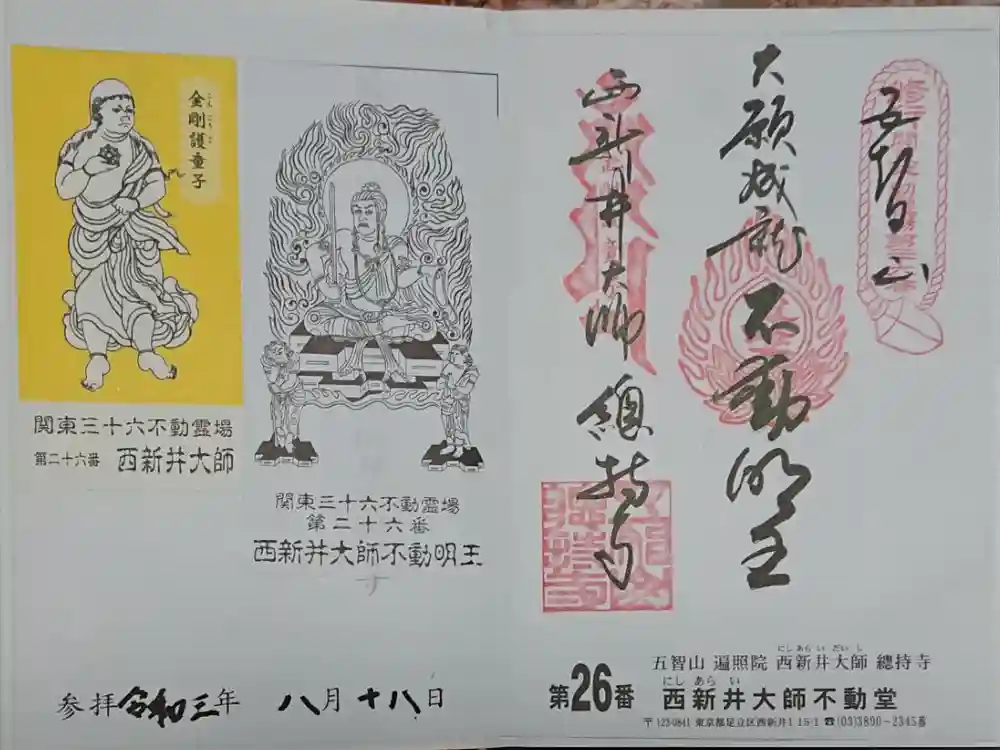 五智山
大願成就
不動明王
西新井大師
總持寺
五智山 遍照院 西新井大師 總持寺
にしあらいだいし
第26番 西新井大師不動堂
にしあらい
〒123-0841 東京都足立区西新井1-15-1 ☎(03)3890-2345番
金剛護童子
こんごうごどうじ
関東三十六不動霊場
第二十六番 西新井大師
関東三十六不動霊場
第二十六番
西新井大師不動明王
参拝令和三年 八月十八日